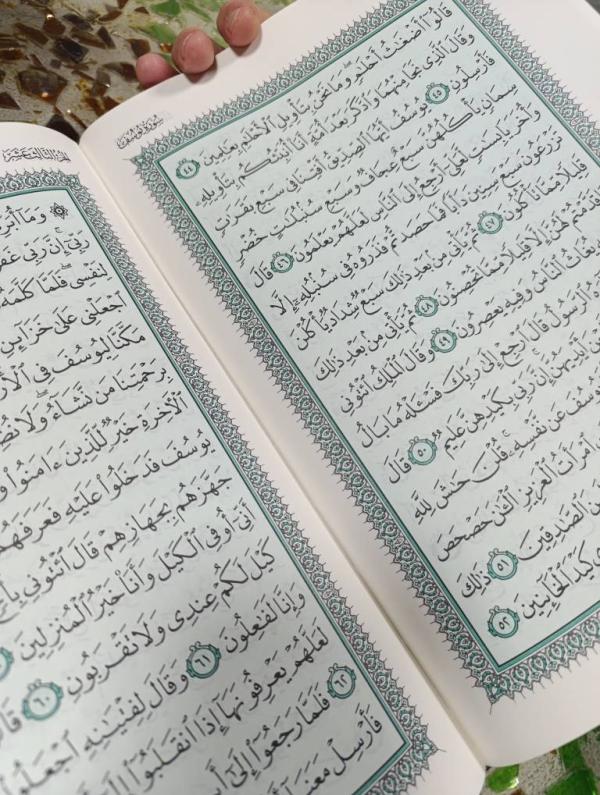 سورة يوسف
قَالُوٓا۟ أَضْغَٰثُ أَحْلَٰمٍ ۖ وَمَا نَحْنُ بِتَأْوِيلِ ٱلْأَحْلَٰمِ بِعَٰلِمِينَ ٤٤
وَقَالَ ٱلَّذِى نَجَا مِنْهُمَا وَٱدَّكَرَ بَعْدَ أُمَّةٍ أَنَا۠ أُنَبِّئُكُم بِتَأْوِيلِهِۦ
فَأَرْسِلُونِ ٤٥ يُوسُفُ أَيُّهَا ٱلصِّدِّيقُ أَفْتِنَا فِى سَبْعِ بَقَرَٰتٍ
سِمَانٍ يَأْكُلُهُنَّ سَبْعٌ عِجَافٌ وَسَبْعِ سُنۢبُلَٰتٍ خُضْرٍ
وَأُخَرَ يَابِسَٰتٍ لَّعَلِّىٓ أَرْجِعُ إِلَى ٱلنَّاسِ لَعَلَّهُمْ يَعْلَمُونَ ٤٦ قَالَ
تَزْرَعُونَ سَبْعَ سِنِينَ دَأَبًا فَمَا حَصَدتُّمْ فَذَرُوهُ فِى سُنۢبُلِهِۦٓ إِلَّا
قَلِيلًا مِّمَّا تَأْكُلُونَ ٤٧ ثُمَّ يَأْتِى مِنۢ بَعْدِ ذَٰلِكَ سَبْعٌ شِدَادٌ يَأْكُلْنَ
قَدَّمْتُمْ لَهُنَّ إِلَّا قَلِيلًا مِّمَّا تُحْصِنُونَ ٤٨ ثُمَّ يَأْتِى مِنۢ بَعْدِ ذَٰلِكَ
يُغَاثُ ٱلنَّاسُ وَفِيهِ يَعْصِرُونَ ٤٩ وَقَالَ ٱلْمَلِكُ ٱئْتُونِى
ٱلرَّسُولُ قَالَ ٱرْجِعْ إِلَىٰ رَبِّكَ فَسْـَٔلْهُ مَا بَالُ
أَيْدِيَهُنَّ إِنَّ رَبِّى بِكَيْدِهِنَّ عَلِيمٌ ٥٠ قَالَ
يُوسُفَ عَن نَّفْسِهِۦ ۚ قُلْنَ حَٰشَ لِلَّهِ
ٱمْرَأَتُ ٱلْعَزِيزِ ٱلْـَٰٔنَ حَصْحَصَ
ٱلصَّٰدِقِينَ ٥١ ذَٰلِكَ
كَيْدَ ٱلْخَآئِنِينَ ٥٢
الجزء الثالث عشر
وَمَآ
رَبِّىٓ ۚ إِنَّ رَبِّى
لِنَفْسِى ۖ فَلَمَّا كَلَّمَهُۥ
ٱجْعَلْنِى عَلَىٰ خَزَآئِنِ
مَكَّنَّا لِيُوسُفَ فِى
بِرَحْمَتِنَا مَن نَّشَآءُ ۖ وَلَا
ٱلْـَٔاخِرَةِ خَيْرٌ لِّلَّذِينَ ءَامَنُوا۟
يُوسُفَ فَدَخَلُوا۟ عَلَيْهِ فَعَرَفَهُمْ
جَهَّزَهُم بِجَهَازِهِمْ قَالَ ٱئْتُونِى
أَنِّىٓ أُوفِى ٱلْكَيْلَ وَأَنَا۠ خَيْرُ ٱلْمُنزِلِينَ
كَيْلَ لَكُمْ عِندِى وَلَا تَقْرَبُونِ ٦٠
وَإِنَّا لَفَٰعِلُونَ ٦١ وَقَالَ لِفِتْيَٰنِهِ ٱجْعَلُوا۟
لَعَلَّهُمْ يَعْرِفُونَهَآ إِذَا ٱنقَلَبُوٓا۟ إِلَىٰٓ
٦٢ فَلَمَّا رَجَعُوٓا۟ إِلَىٰٓ
فَأَرْسِلْ مَعَنَآ